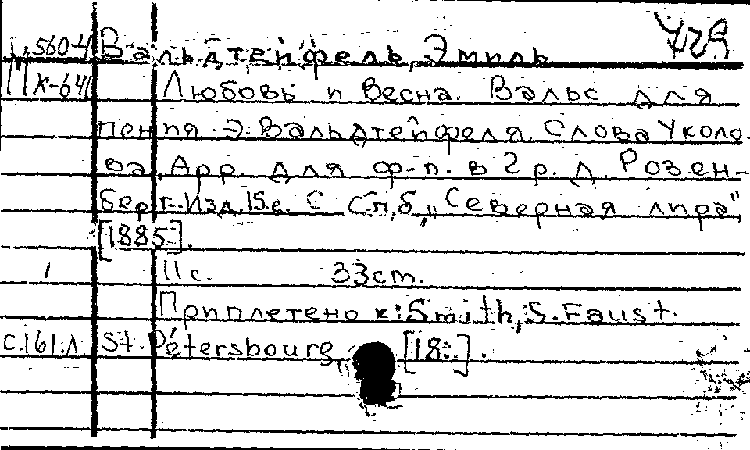 560-4 Вальдтейфель, Эмиль 729
К-641 Любовь и весна. Вальс для
пения Э. Вальдтейфеля. Слова Уколо-
ва. Арр. для ф-п. в 2 р. Л. Розен-
берг. Изд. 15-е. С Спб, „Северная лира",
[1885].
1 11 с. 33 cm.
Приплетено к: Smith, S. Faust.
с.161.л St. Pétersbourg, [18..].